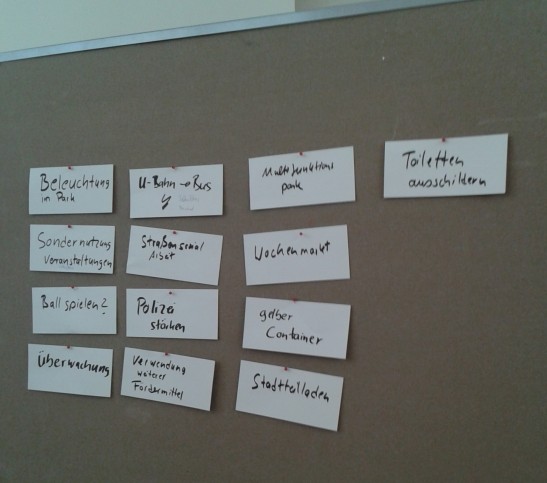 Beleuchtung
im Park
Sondernutzung
Veranstaltungen
Ball spielen?
Überwachung
U-Bahn → Bus
Straßensozial
Arbat
Polizei
stärken
Verwendung
weiterer
Fördermittel
Multifunktions
park
Wochenmarkt
gelber
Container
Stadtteilladen
Toiletten
ausschildern